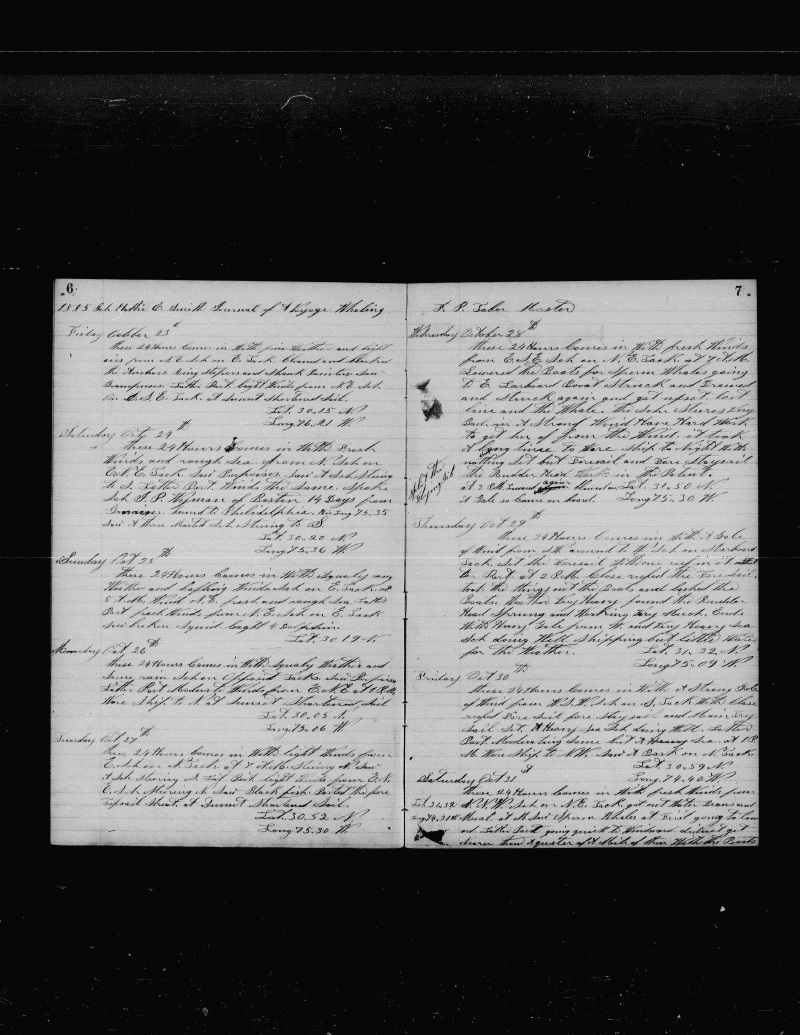 6
1885 Sch Hattie E. Smith Journal of A Voyage Whaling
Friday October 23d
These 24 Hours Comes in With fine Weather and light
airs from N.E. Sch on E. Tack Cleaned and blacked
the Anchors Ring Stopers and Shank Painters Saw
Grampuses. Latter Part light Winds from N.E. Sch
on E.S.E. Tack. at Sunset Shortened Sail.
Lat. 30.15 N
Long 76.21 W
Saturday Oct 24th
These 24 Hours Comes in With Fresh
Winds and rough Sea from N. Sch on
E. Tack. Saw Porpoises. Saw A Sch Stering
to S. Latter Part Winds the Same. Spoke
Sch J.P. Wyman of Boston 14 Days from
bound to Philidelphia. His Long 75.35
Saw A three Masted Sch Stering to S
Lat. 30.20 N
Long 75.36 W
Sunday Oct 25th
These 24 Hours Comes in With Squaly
Weather and baffling Winds Sch on E. Tack at
Wind N.E. fresh and rough Sea Latter
Part fresh Winds from N.E. Sch on E. Tack
Saw broken Squid Caght 4 Dolphins
Lat. 30 19 N
Monday Oct 26th
These 24 Hours Comes in With Squaly Weather and
Some rain Sch on Tacks. Saw Porpoises
Latter Part Moderate Winds from E.N.E. at 1 P.M.
Wore Ship to N. at Sunset Shortened Sail
Lat. 30.05 N
Long 75.06 W
Tuesday Oct 27th
These 24 Hours Comes in With light Winds from
E. Sch on N. Tack. at 7 A.M. Stering N. Saw
A Sch Stering N. Lat Part light Winds from E.N.
E. Sch Stering N. Saw Black fish. Painted the fore
topsail Sheat. at Sunset Shortened Sail.
Lat. 30.52 N
Long 75.30 W
7
F. P. Taber Master
Wednesday October 28th
These 24 Hours Comes in With fresh Winds
from E.S.E. Sch on N.E. Tack. at 7 A.M.
Lowered the Boats for Sperm Whales going
to E. Larboard Boat Struck and Drawed
and Struck again and got upset. lost
line and the Whale. the Sch Steres Very
Bad in A Strong Wind Have Hard Work
to get her of from the Wind. it took
A long time to Wore Ship to Night With
nothing Set but Foresail and Fore Staysail
the Rudder Head Works in the
at 2 P.M. lowered again blowed on Lat. 31.50 N
A Gale so Came on board. Long 75.30 W
the
flying Gib
Thursday Oct 29th
These 24 Hours Comes in With A Gale
of Wind from around to Sch on Starboard
Tack. Set the Foresail With one reef in it Lat
ter Part. at 2 P.M. Close reefed the Foresail.
took the things out the Boats and lashed the
Boats. Weather Very Heavy found the Rudder
Head Sprung and Working Very Much. Ends
With Heavy Gale from W. and Very Heavy Sea
Sch doing Well Shipping but little Water
for the Weather. Lat 31.22 N
Long 75.09 W
Friday Oct 30th
These 24 Hours Comes in With A Strong Gale
of Wind from W.S.W. Sch on S. Tack With Close
reefed Fore Sail fore Stay sail and Main Try
Sail Set. A Heavy Sea Sch doing Well. Latter
Part Moderating Some but A Heavy Sea. at 1 P.
M. Wore Ship to N.W. Saw A Bark on N. Tack.
Lat 30.59 N
Long. 74.40 W
Saturday Oct 31st
These 24 Hours Comes in With fresh Winds from
Lat. 31.12 N.N.W. Sch on N.E. Tack got out Water Beans and
Long 74.31 W Meal. at M Saw Sperm Whales at First going to leew
ard. Latter Part going quick to Windward did not get
nearer then A quater of A Mile of them With the Boats